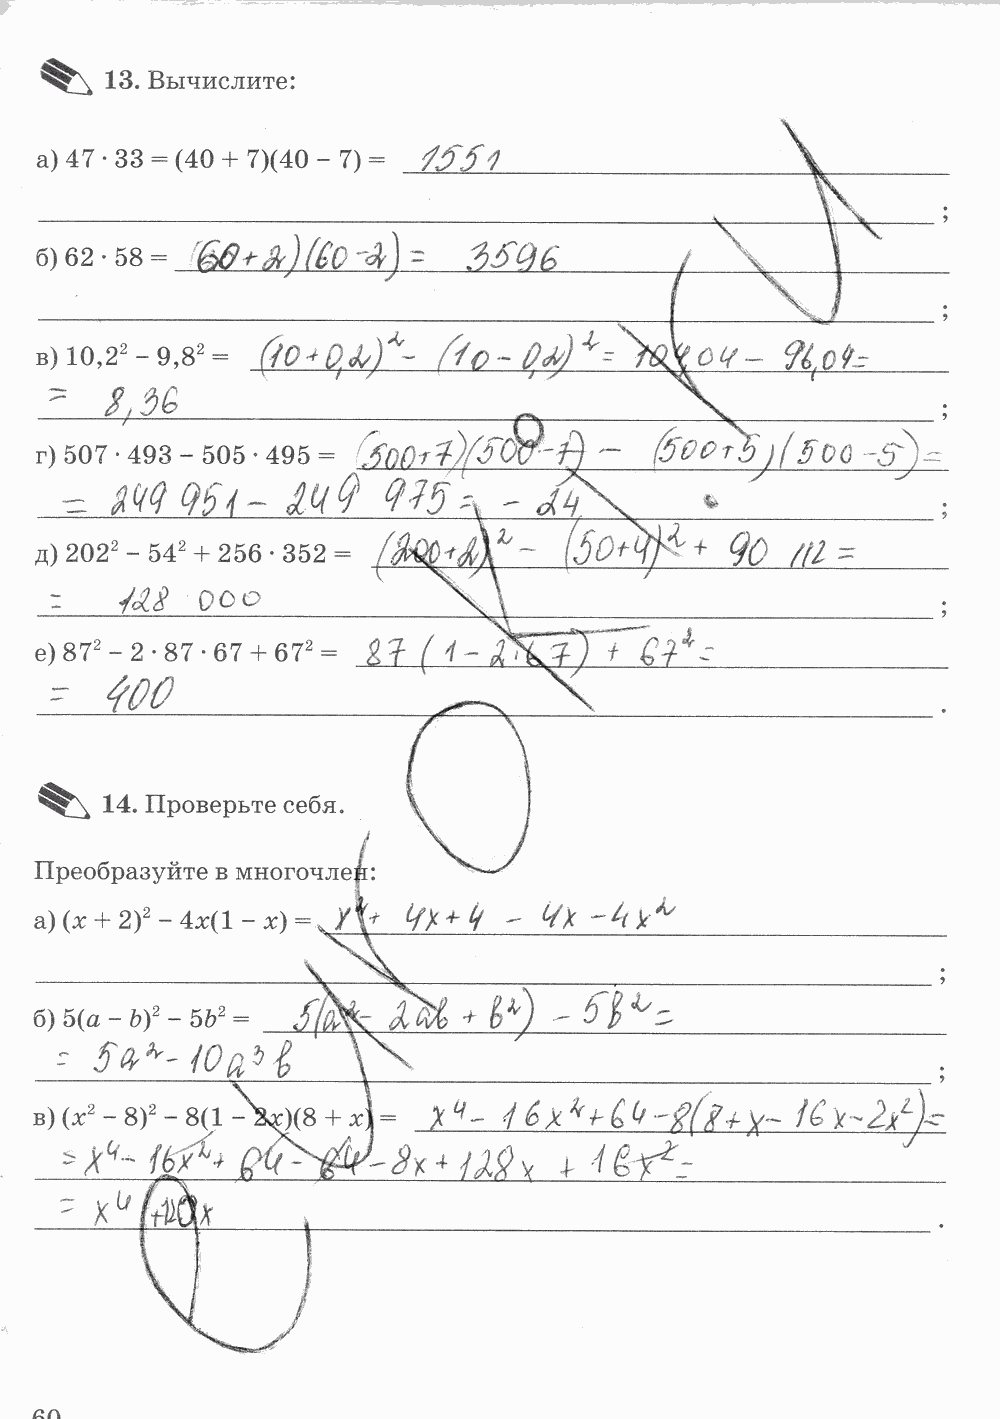 13. Вычислите:
а) 47 · 33 = (40 + 7)(40 − 7) = 1551
;
б) 62 · 58 = (60+2)(60-2) = 3596
;
в) 10,2² − 9,8² = (10+0,2)² - (10-0,2)² = 104,04 - 96,04 =
= 8,36 ;
г) 507 · 493 − 505 · 495 = (500+7)(500-7) - (500+5)(500-5) =
= 249 951 - 249 975 = - 24 ;
д) 202² − 54² + 256 · 352 = (200+2)² - (50+4)² + 90 112 =
= 128 000 ;
е) 87² − 2 · 87 · 67 + 67² = 87 (1-2·67) + 67² =
= 400 .
14. Проверьте себя.
Преобразуйте в многочлен:
а) (x + 2)² − 4x(1 − x) = x² + 4x + 4 - 4x - 4x²
;
б) 5(a − b)² − 5b² = 5(a² - 2ab + b²) - 5b² =
= 5a² - 10a³b ;
в) (x² − 8)² − 8(1 − 2x)(8 + x) = x⁴ - 16x² + 64 - 8(8 + x - 16x - 2x²) =
= x⁴ - 16x² + 64 - 64 - 8x + 128x + 16x² =
= x⁴ + 120x .
60